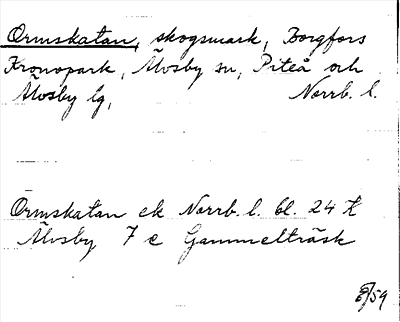 Ormskatan, skogsmark, Borgfors
Kronopark, Älvsby sn, Piteå och
Älvsby lg, Norrb. l.
Ormskatan ek Norrb. l. bl. 24 K
Älvsby 7 e Gammelträsk
/59